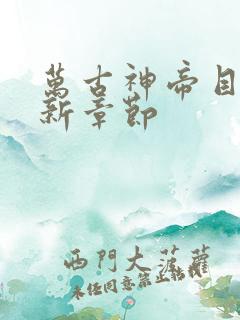 萬古神帝目
新章節
西門大菠蘿
未任同意禁止轉載